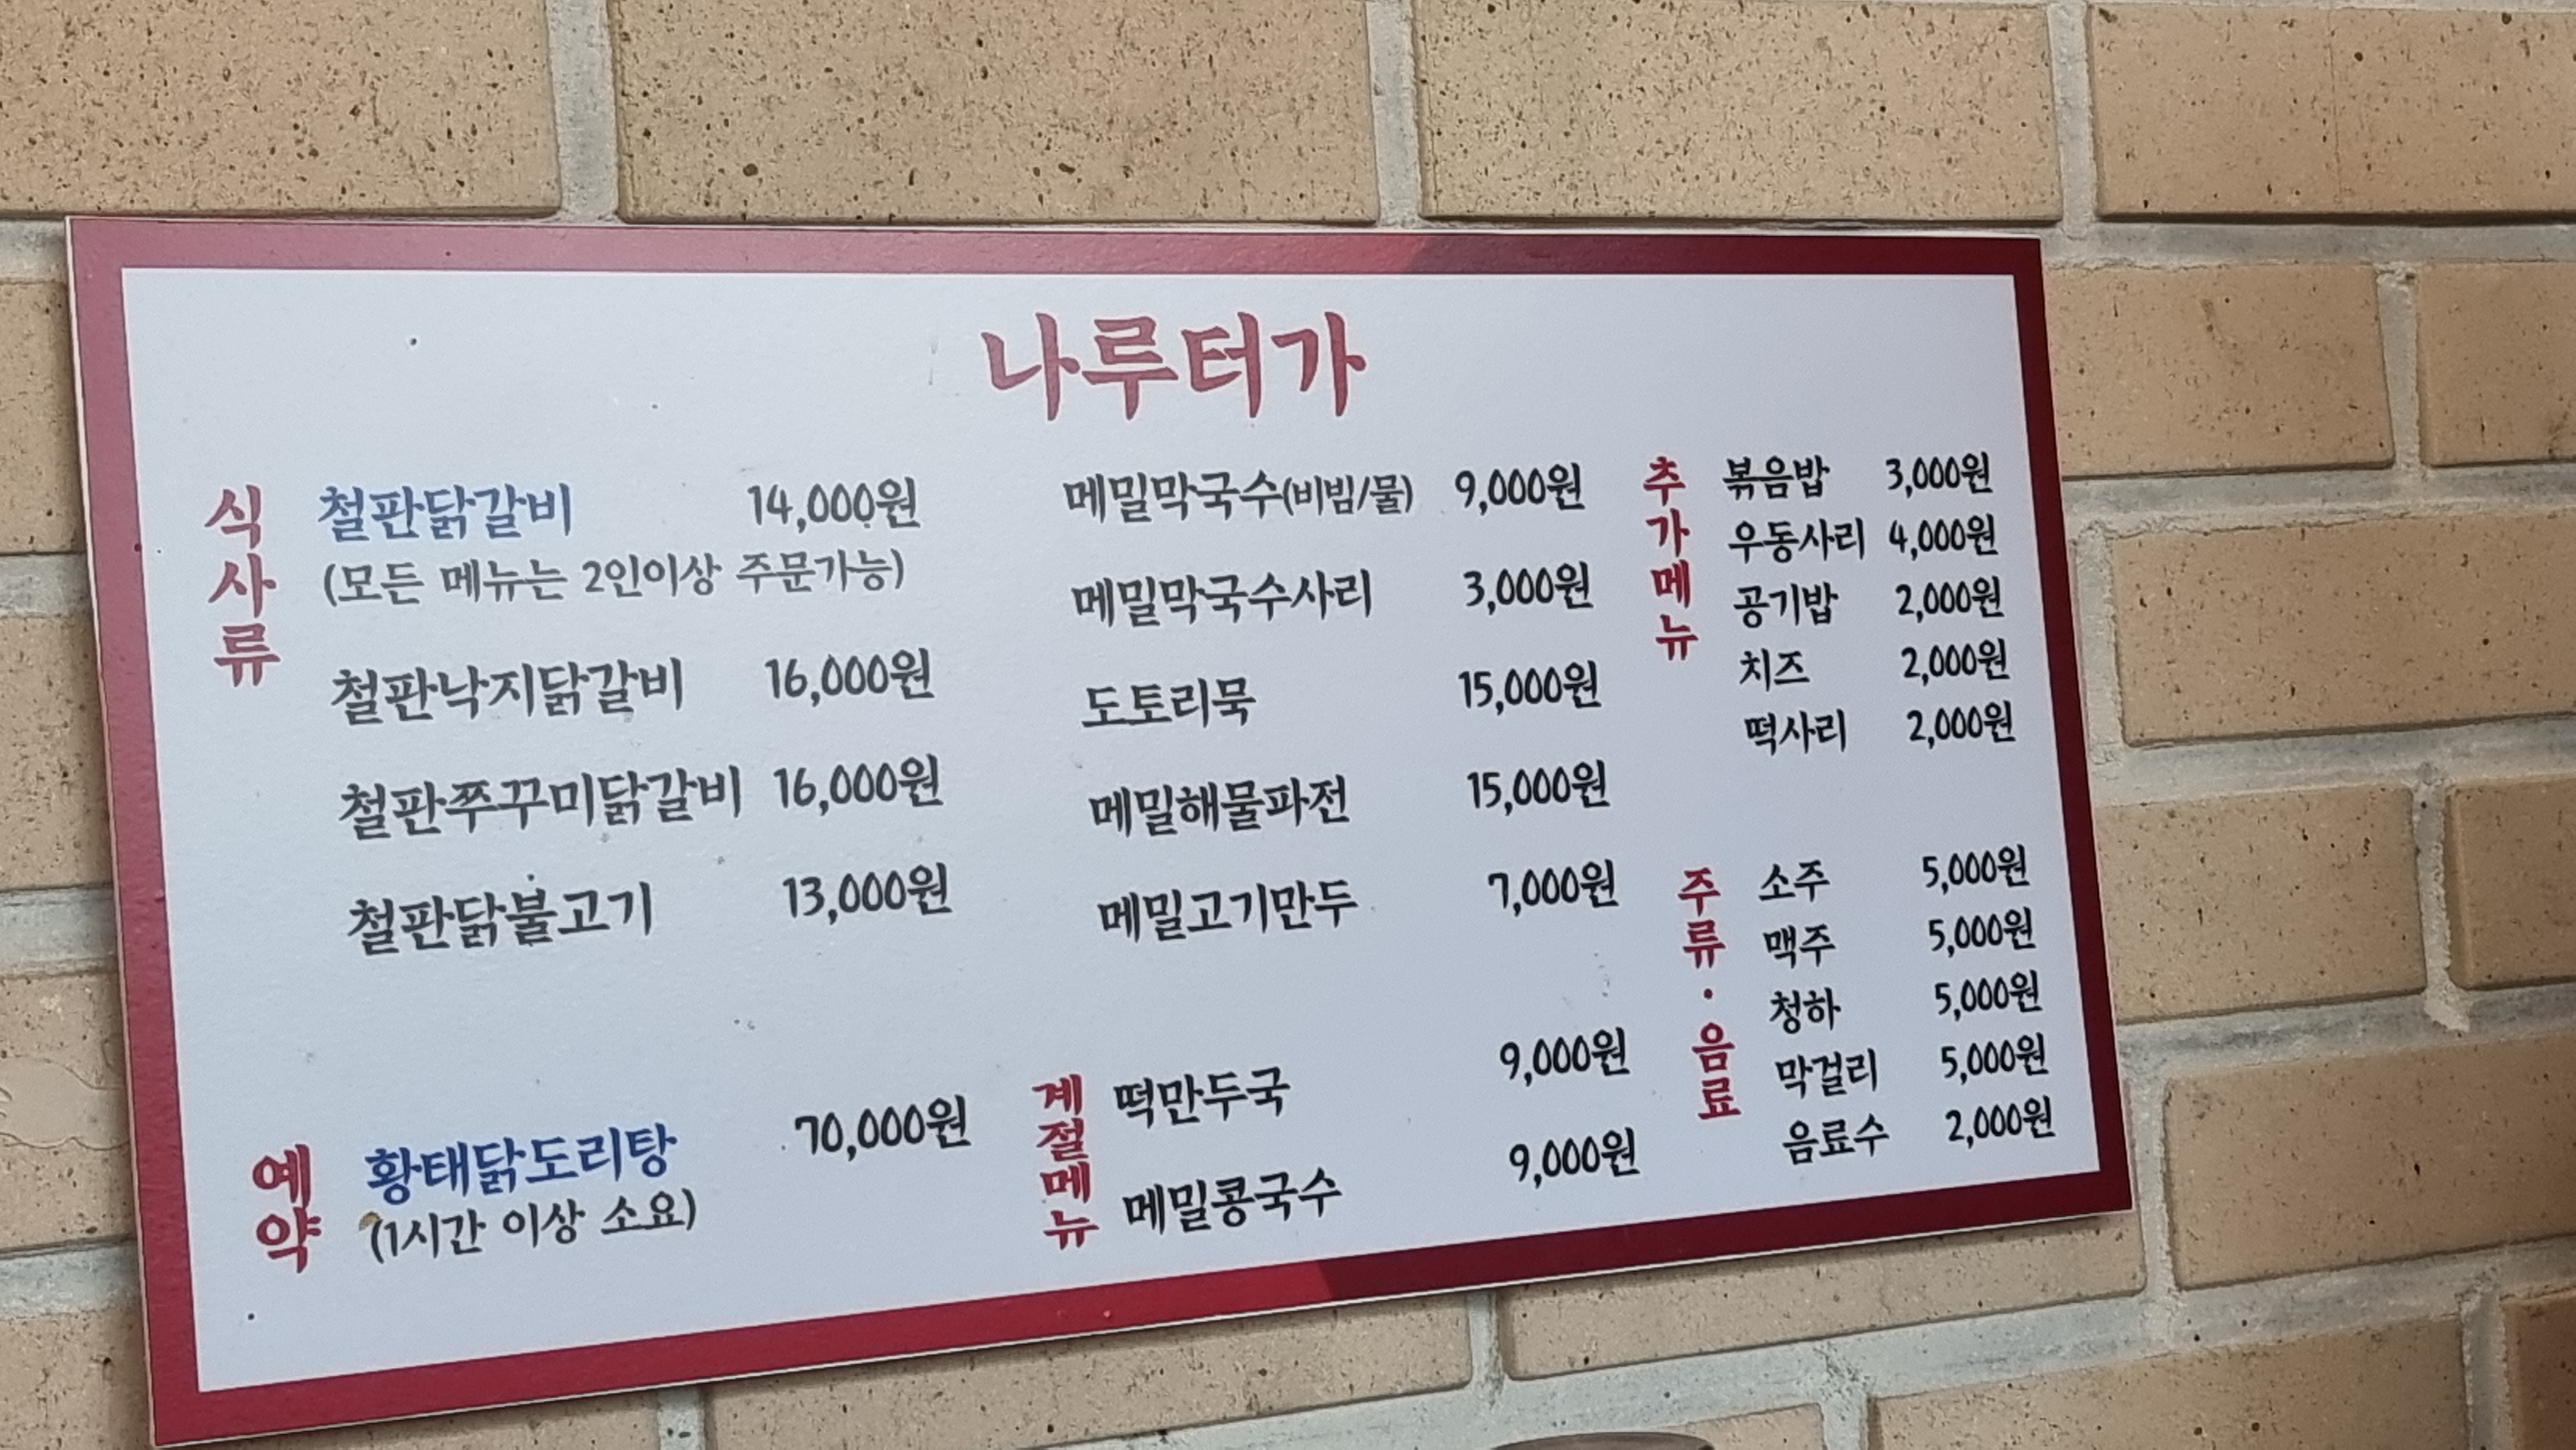 나루터가
식사류
철판닭갈비 14,000원
(모든 메뉴는 2인이상 주문가능)
철판낙지닭갈비 16,000원
철판쭈꾸미닭갈비 16,000원
철판닭불고기 13,000원
예약
황태닭도리탕 70,000원
(1시간 이상 소요)
메밀막국수(비빔/물) 9,000원
메밀막국수사리 3,000원
도토리묵 15,000원
메밀해물파전 15,000원
메밀고기만두 7,000원
계절메뉴
떡만두국 9,000원
메밀콩국수 9,000원
추가메뉴
볶음밥 3,000원
우동사리 4,000원
공기밥 2,000원
치즈 2,000원
떡사리 2,000원
주류·음료
소주 5,000원
맥주 5,000원
청하 5,000원
막걸리 5,000원
음료수 2,000원